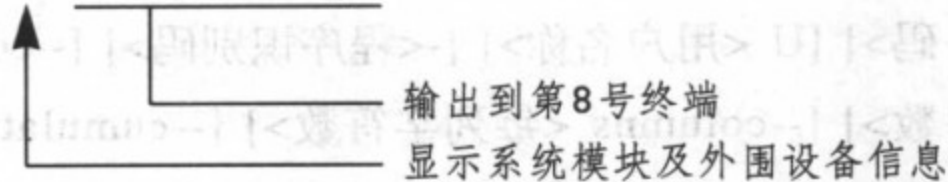 输出到第8号终端
显示系统模块及外围设备信息